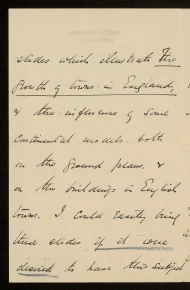 slides which illustrate The
growth of towns in England,
& the influence of some
continental models both
on the ground plans, &
on the buildings in English
towns. I could easily bring
these slides if it were
desired to have this subject